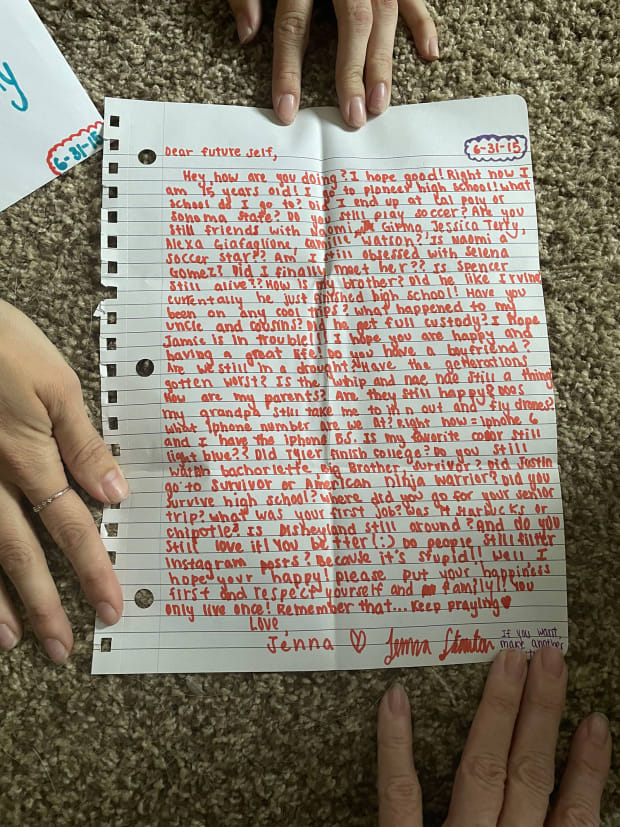 y
6-31-15
6-31-15
Dear future self,
Hey, how are you doing? I hope good! Right now I
am 15 years old! I go to pioneer high school! what
school do I go to? Did I end up at cal poly or
Sonoma State? Do you still play soccer? Are you
still friends with Naomi Girma, Jessica Terry,
Alexa Giafaglione, camille Watson? Is Naomi a
soccer star?? Am I still obsessed with Selena
Gomez? Did I finally meet her?? Is Spencer
still alive?? How is my brother? Did he like Irvine
currentally he just finished high school! Have you
been on any cool trips? what happened to my
uncle and cousins? Did he get full custody? I hope
Jamie is in trouble!! I hope you are happy and
having a great life! Do you have a boyfriend?
Are we still in a drought? Have the generations
gotten worst? Is the whip and nae nae still a thing
How are my parents? Are they still happy? Does
my grandpa still take me to in n out and fly drones?
What iphone number are we at? Right now = iphone 6
and I have the iphone 5s. Is my favorite color still
light blue?? Did Tyler finish college? Do you still
watch bachorlette, Big Brother, survivor? Did Justin
go to survivor or American ninja warrior? Did you
survive high school? where did you go for your senior
trip? what was your first job? was it starbucks or
chipotle? Is Disneyland still around? And do you
still love it! You better (:) Do people still filter
instagram posts? Because it's stupid!! Well I
hope your happy! please put your happiness
first and respect yourself and family!! you
only live once! Remember that... keep praying♥
LOVE
Jenna ♡ Jenna Stanton
If you want,
make another